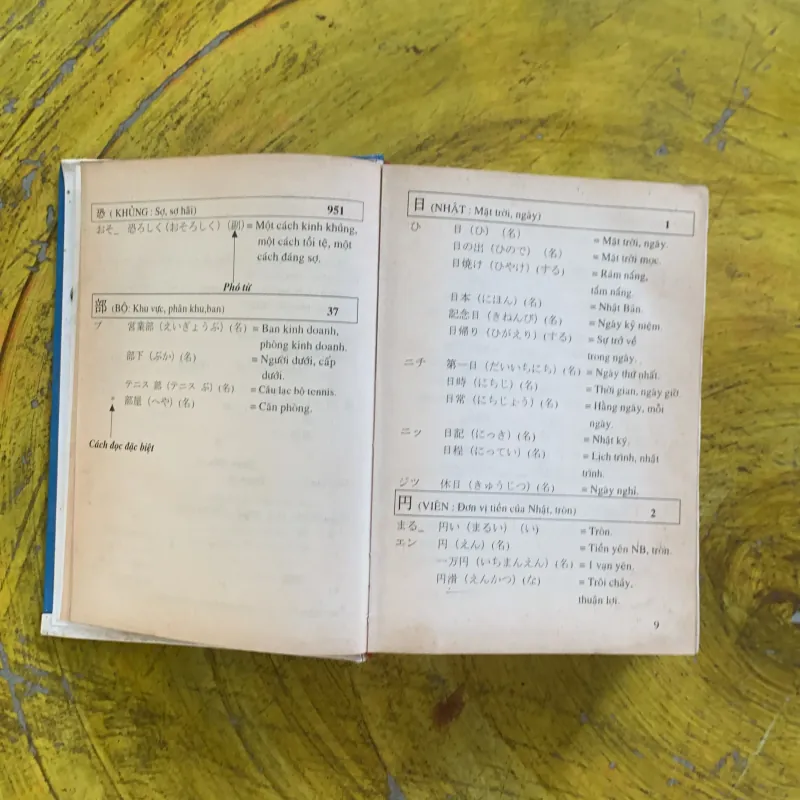 恐 ( KHỦNG : Sợ, sợ hãi) 951
おそ_ 恐ろしく (おそろしく) (副) = Một cách kinh khủng,
một cách tồi tệ, một
cách đáng sợ.
Phó từ
部 (BỘ: Khu vực, phân khu,ban) 37
ブ 営業部 (えいぎょうぶ) (名) = Ban kinh doanh,
phòng kinh doanh.
部下 (ぶか) (名) = Người dưới, cấp
dưới.
テニス 部 (テニス ぶ) (名) = Câu lạc bộ tennis.
* 部屋 (へや) (名) = Căn phòng.
Cách đọc đặc biệt
日 (NHẬT : Mặt trời, ngày) 1
ひ 日 (ひ) (名) = Mặt trời, ngày.
日の出 (ひので) (名) = Mặt trời mọc.
日焼け (ひやけ) (する) = Rám nắng,
tắm nắng.
日本 (にほん) (名) = Nhật Bản.
記念日 (きねんび) (名) = Ngày kỷ niệm.
日帰り (ひがえり) (する) = Sự trở về
trong ngày.
ニチ 第一日 (だいいちにち) (名) = Ngày thứ nhất.
日時 (にちじ) (名) = Thời gian, ngày giờ.
日常 (にちじょう) (名) = Hằng ngày, mỗi
ngày.
ニッ 日記 (にっき) (名) = Nhật ký.
日程 (にってい) (名) = Lịch trình, nhật
trình.
ジツ 休日 (きゅうじつ) (名) = Ngày nghỉ.
円 (VIÊN : Đơn vị tiền của Nhật, tròn) 2
まる_ 円い (まるい) (い) = Tròn.
エン 円 (えん) (名) = Tiền yên NB, tròn.
一万円 (いちまんえん) (名) = 1 vạn yên.
円滑 (えんかつ) (な) = Trôi chảy,
thuận lợi.
9